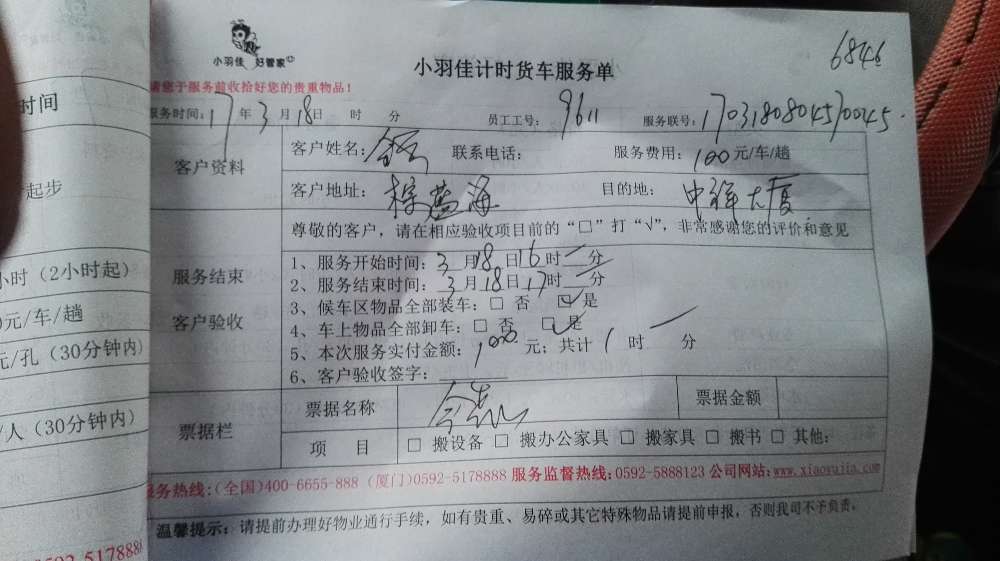 小羽佳 好管家
小羽佳计时货车服务单
6846
请您于服务前收拾好您的贵重物品！
服务时间：17年3月18日 时 分 员工工号：9611 服务联号：
客户资料
客户姓名： 联系电话： 服务费用：100元/车/趟
客户地址： 蓝海 目的地：中祥大厦
尊敬的客户，请在相应验收项目前的“□”打“√”，非常感谢您的评价和意见
服务结束
客户验收
1、服务开始时间：3月18日16时 分
2、服务结束时间：3月18日17时 分
3、候车区物品全部装车：□ 否 ☑ 是
4、车上物品全部卸车：□ 否 ☑ 是
5、本次服务实付金额：100元；共计1时 分
6、客户验收签字：
票据栏
票据名称
票据金额
项 目 □ 搬设备 □ 搬办公家具 □ 搬家具 □ 搬书 □ 其他：
服务热线：(全国)400-6655-888 (厦门)0592-5178888 服务监督热线：0592-5888123 公司网站：www.xiaoyujia.com
温馨提示：请提前办理好物业通行手续，如有贵重、易碎或其它特殊物品请提前申报，否则我司不予负责。
时间
起步
小时（2小时起）
元/车/趟
元/孔（30分钟内）
/人（30分钟内）
0592-5178888